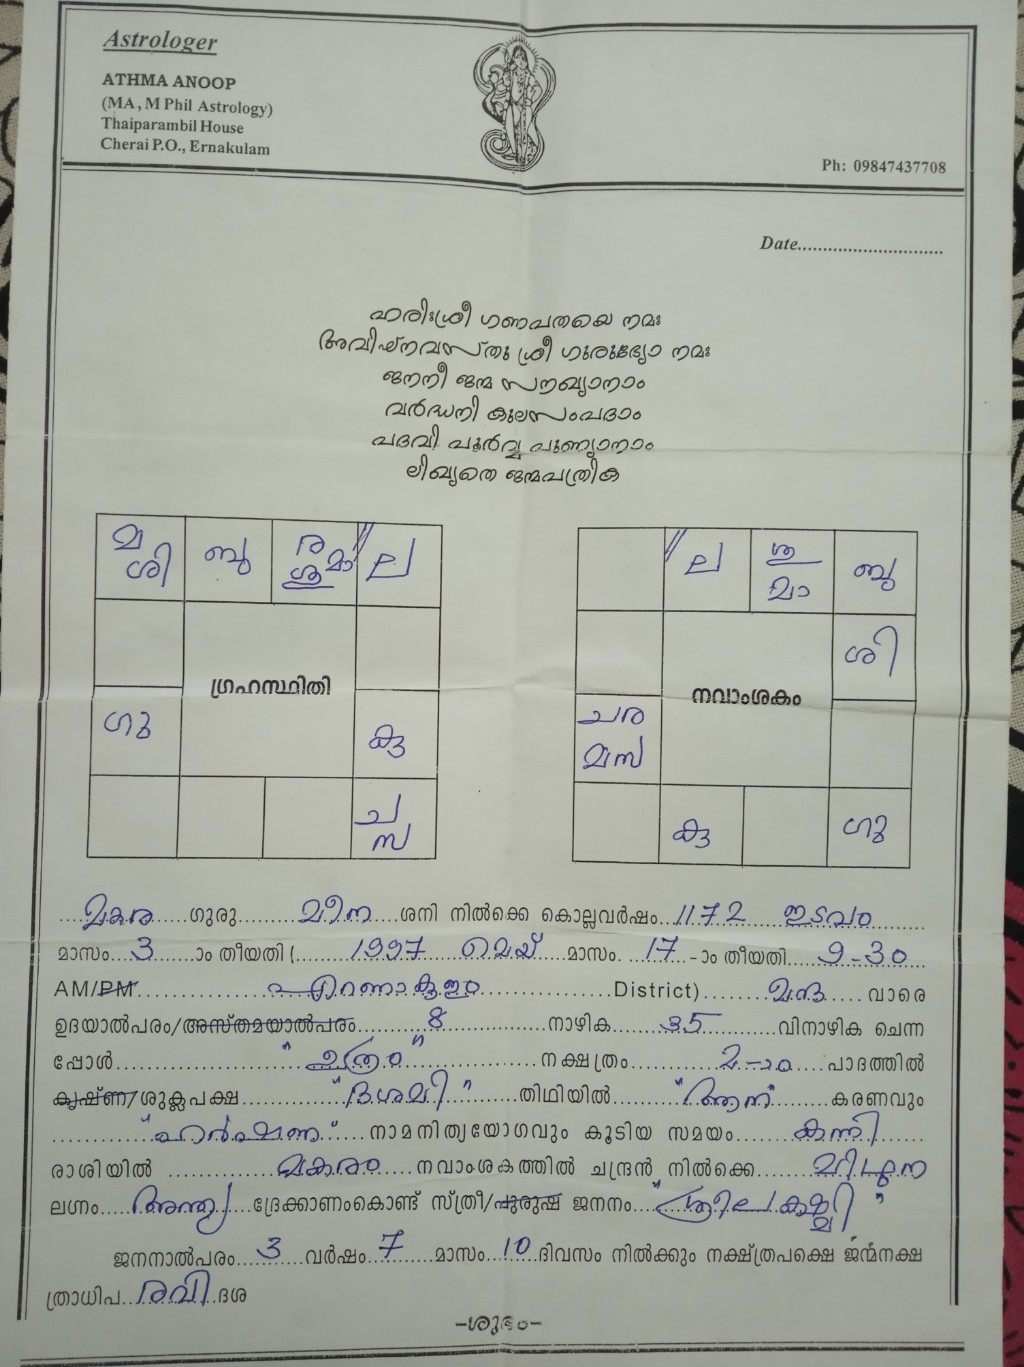 Astrologer
ATHMA ANOOP
(MA, M Phil Astrology)
Thaiparambil House
Cherai P.O., Ernakulam
Ph: 09847437708
Date............................
ഹരിഃശ്രീ ഗണപതയെ നമഃ
അവിഘ്നവസ്തു ശ്രീ ഗുരുഭ്യോ നമഃ
ജനനീ ജന്മ സൗഖ്യാനാം
വർദ്ധനി കുലസംപദാം
പദവി പൂർവ്വ പുണ്യാനാം
ലിഖ്യതെ ജന്മപത്രിക
മ ശി
ബു
ര ശു മാ
ല
ഗ്രഹസ്ഥിതി
ഗു
കു
ച സ
ല
ശു മാ
ബു
ശി
നവാംശകം
ച ര മ സ
കു
ഗു
മകര ഗുരു മീന ശനി നിൽക്കെ കൊല്ലവർഷം 1172 ഇടവം
മാസം 3 ാം തീയതി ( 1997 മെയ് മാസം 17 -ാം തീയതി 9-30
AM/PM എറണാകുളം District) മന്ദ വാരെ
ഉദയാൽപരം/അസ്തമയാൽപരം 8 നാഴിക 35 വിനാഴിക ചെന്ന
പ്പോൾ നക്ഷത്രം 2-ാം പാദത്തിൽ
കൃഷ്ണ/ശുക്ലപക്ഷ "ദശമി" തിഥിയിൽ കരണവും
നാമനിത്യയോഗവും കൂടിയ സമയം കന്നി
രാശിയിൽ മകരം നവാംശകത്തിൽ ചന്ദ്രൻ നിൽക്കെ മിഥുന
ലഗ്നം അന്ത്യ ദ്രേക്കാണംകൊണ്ട് സ്ത്രീ/പുരുഷ ജനനം "ശ്രീലക്ഷ്മി"
ജനനാൽപരം 3 വർഷം 7 മാസം 10 ദിവസം നിൽക്കും നക്ഷത്രപക്ഷെ ജന്മനക്ഷ
ത്രാധിപ രവി ദശ
-ശുഭം-